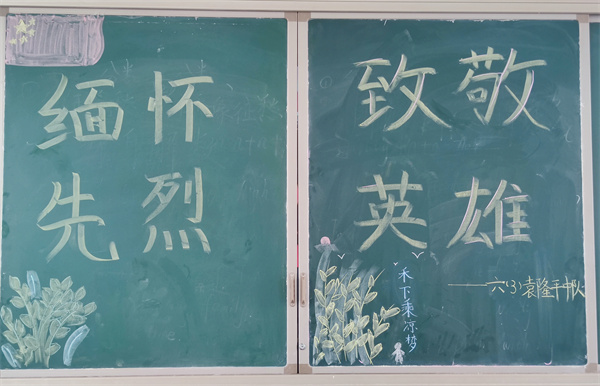 缅怀
先烈
致敬
英雄
——六(3)袁隆平中队
禾下乘凉梦